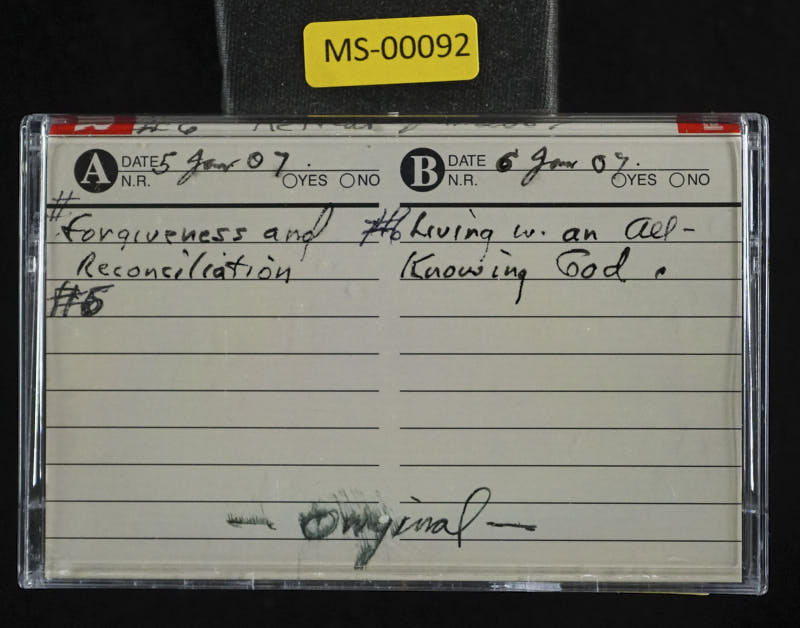 MS-00092
#6
A DATE 5 Jan 07.
N.R. YES NO
#
Forgiveness and
Reconciliation
#5
B DATE 6 Jan 07.
N.R. YES NO
#6 Living w. an All-
Knowing God.
— Original —